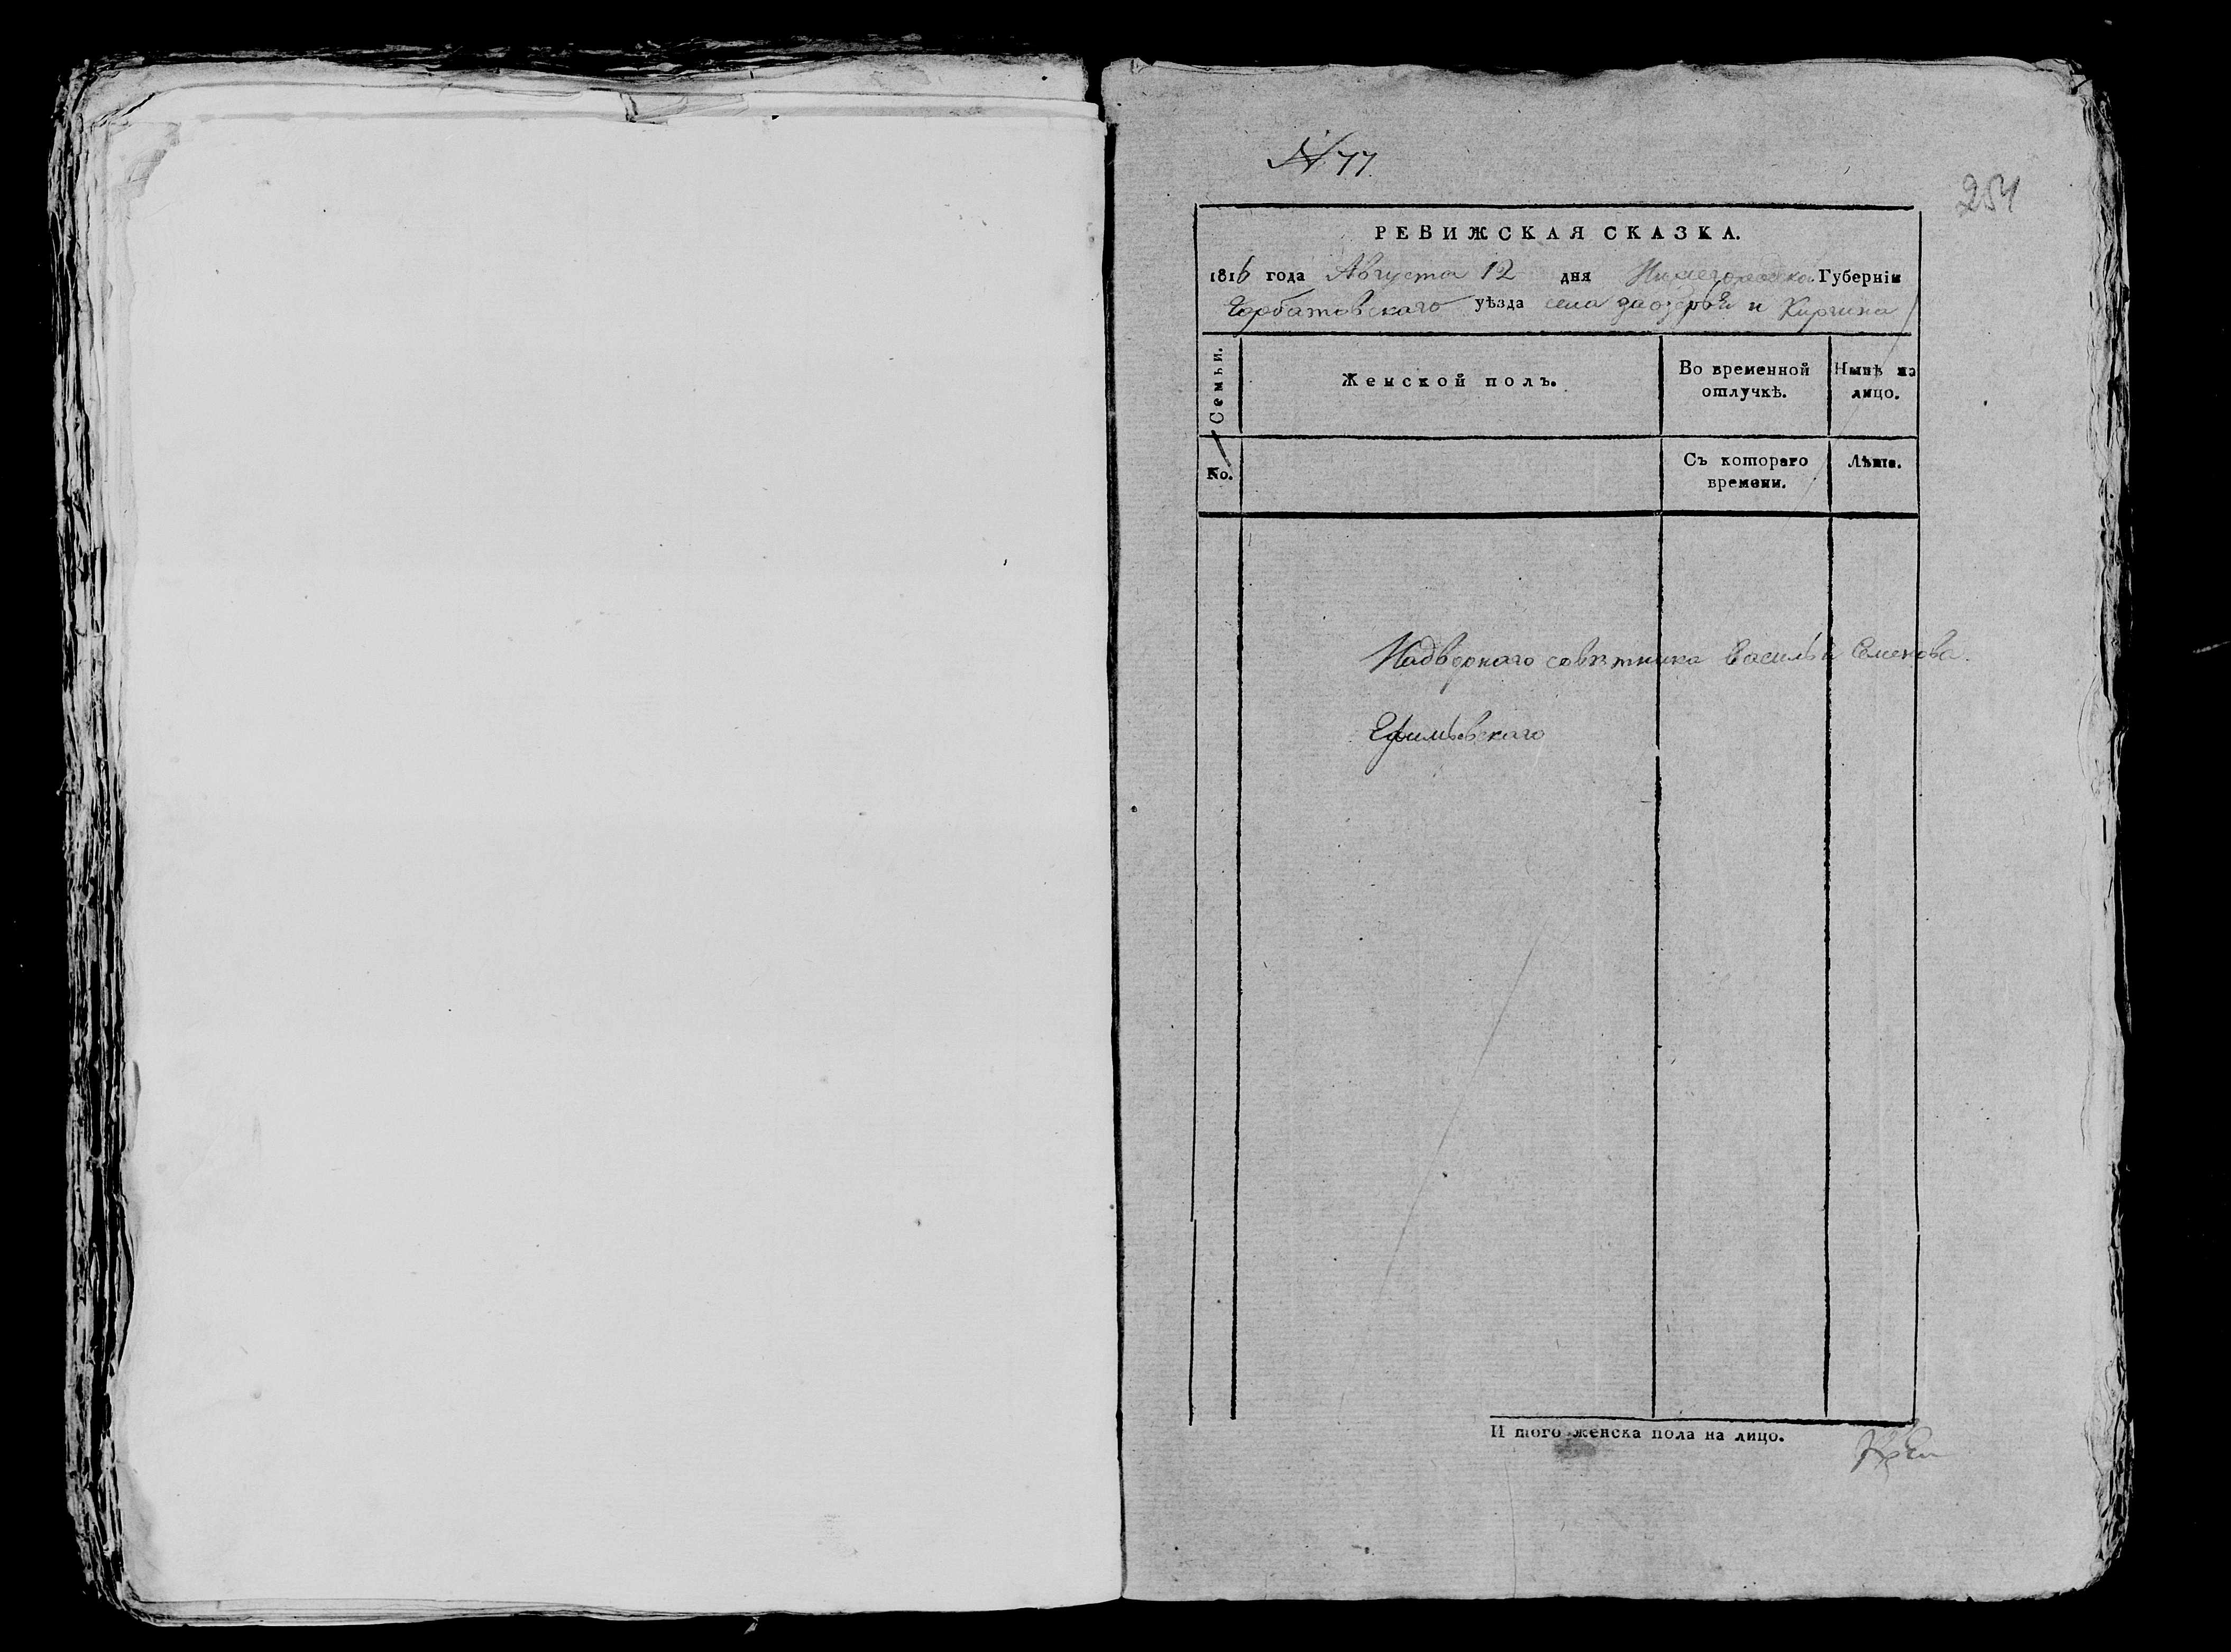 № 77
254
РЕВИЖСКАЯ СКАЗКА.
1816 года Августа 12 дня Нижегородска Губерніи
Горбатовскаго уѣзда села заозерья и Киргина
Семьи. Женской полъ. Во временной отлучкѣ. Нынѣ на лицо.
No. Съ котораго времени. Лѣта.
Надворнаго советника Василья Семенова
Ефимьевскаго
И того женска пола на лицо.